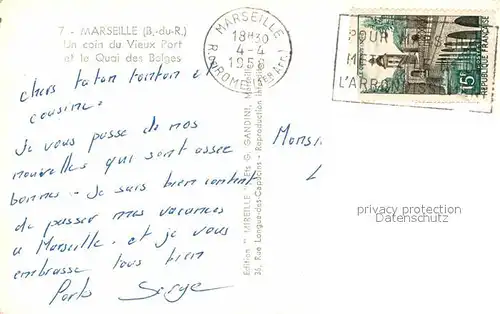 7 - MARSEILLE (B.-du-R.)
Un coin du Vieux Port
et le Quai des Belges
chers taton tonton et
cousine.
Je vous passe de mos
nouvelles qui sont assee
bonnes. Je suis bien content
de passer mes vacances
a Marseille. et je vous
embrasse tous bien
Serge
Monsi
MARSEILLE
18H30
4-4
195
R. DROME (1ER Arr.)
POUR
L'ARRON
15F
REPUBLIQUE FRANÇAISE
Edition "MIREILLE" Ets G. GANDINI, Marseille
35, Rue Longue-des-Capucins - Reproduction
privacy protection
Datenschutz